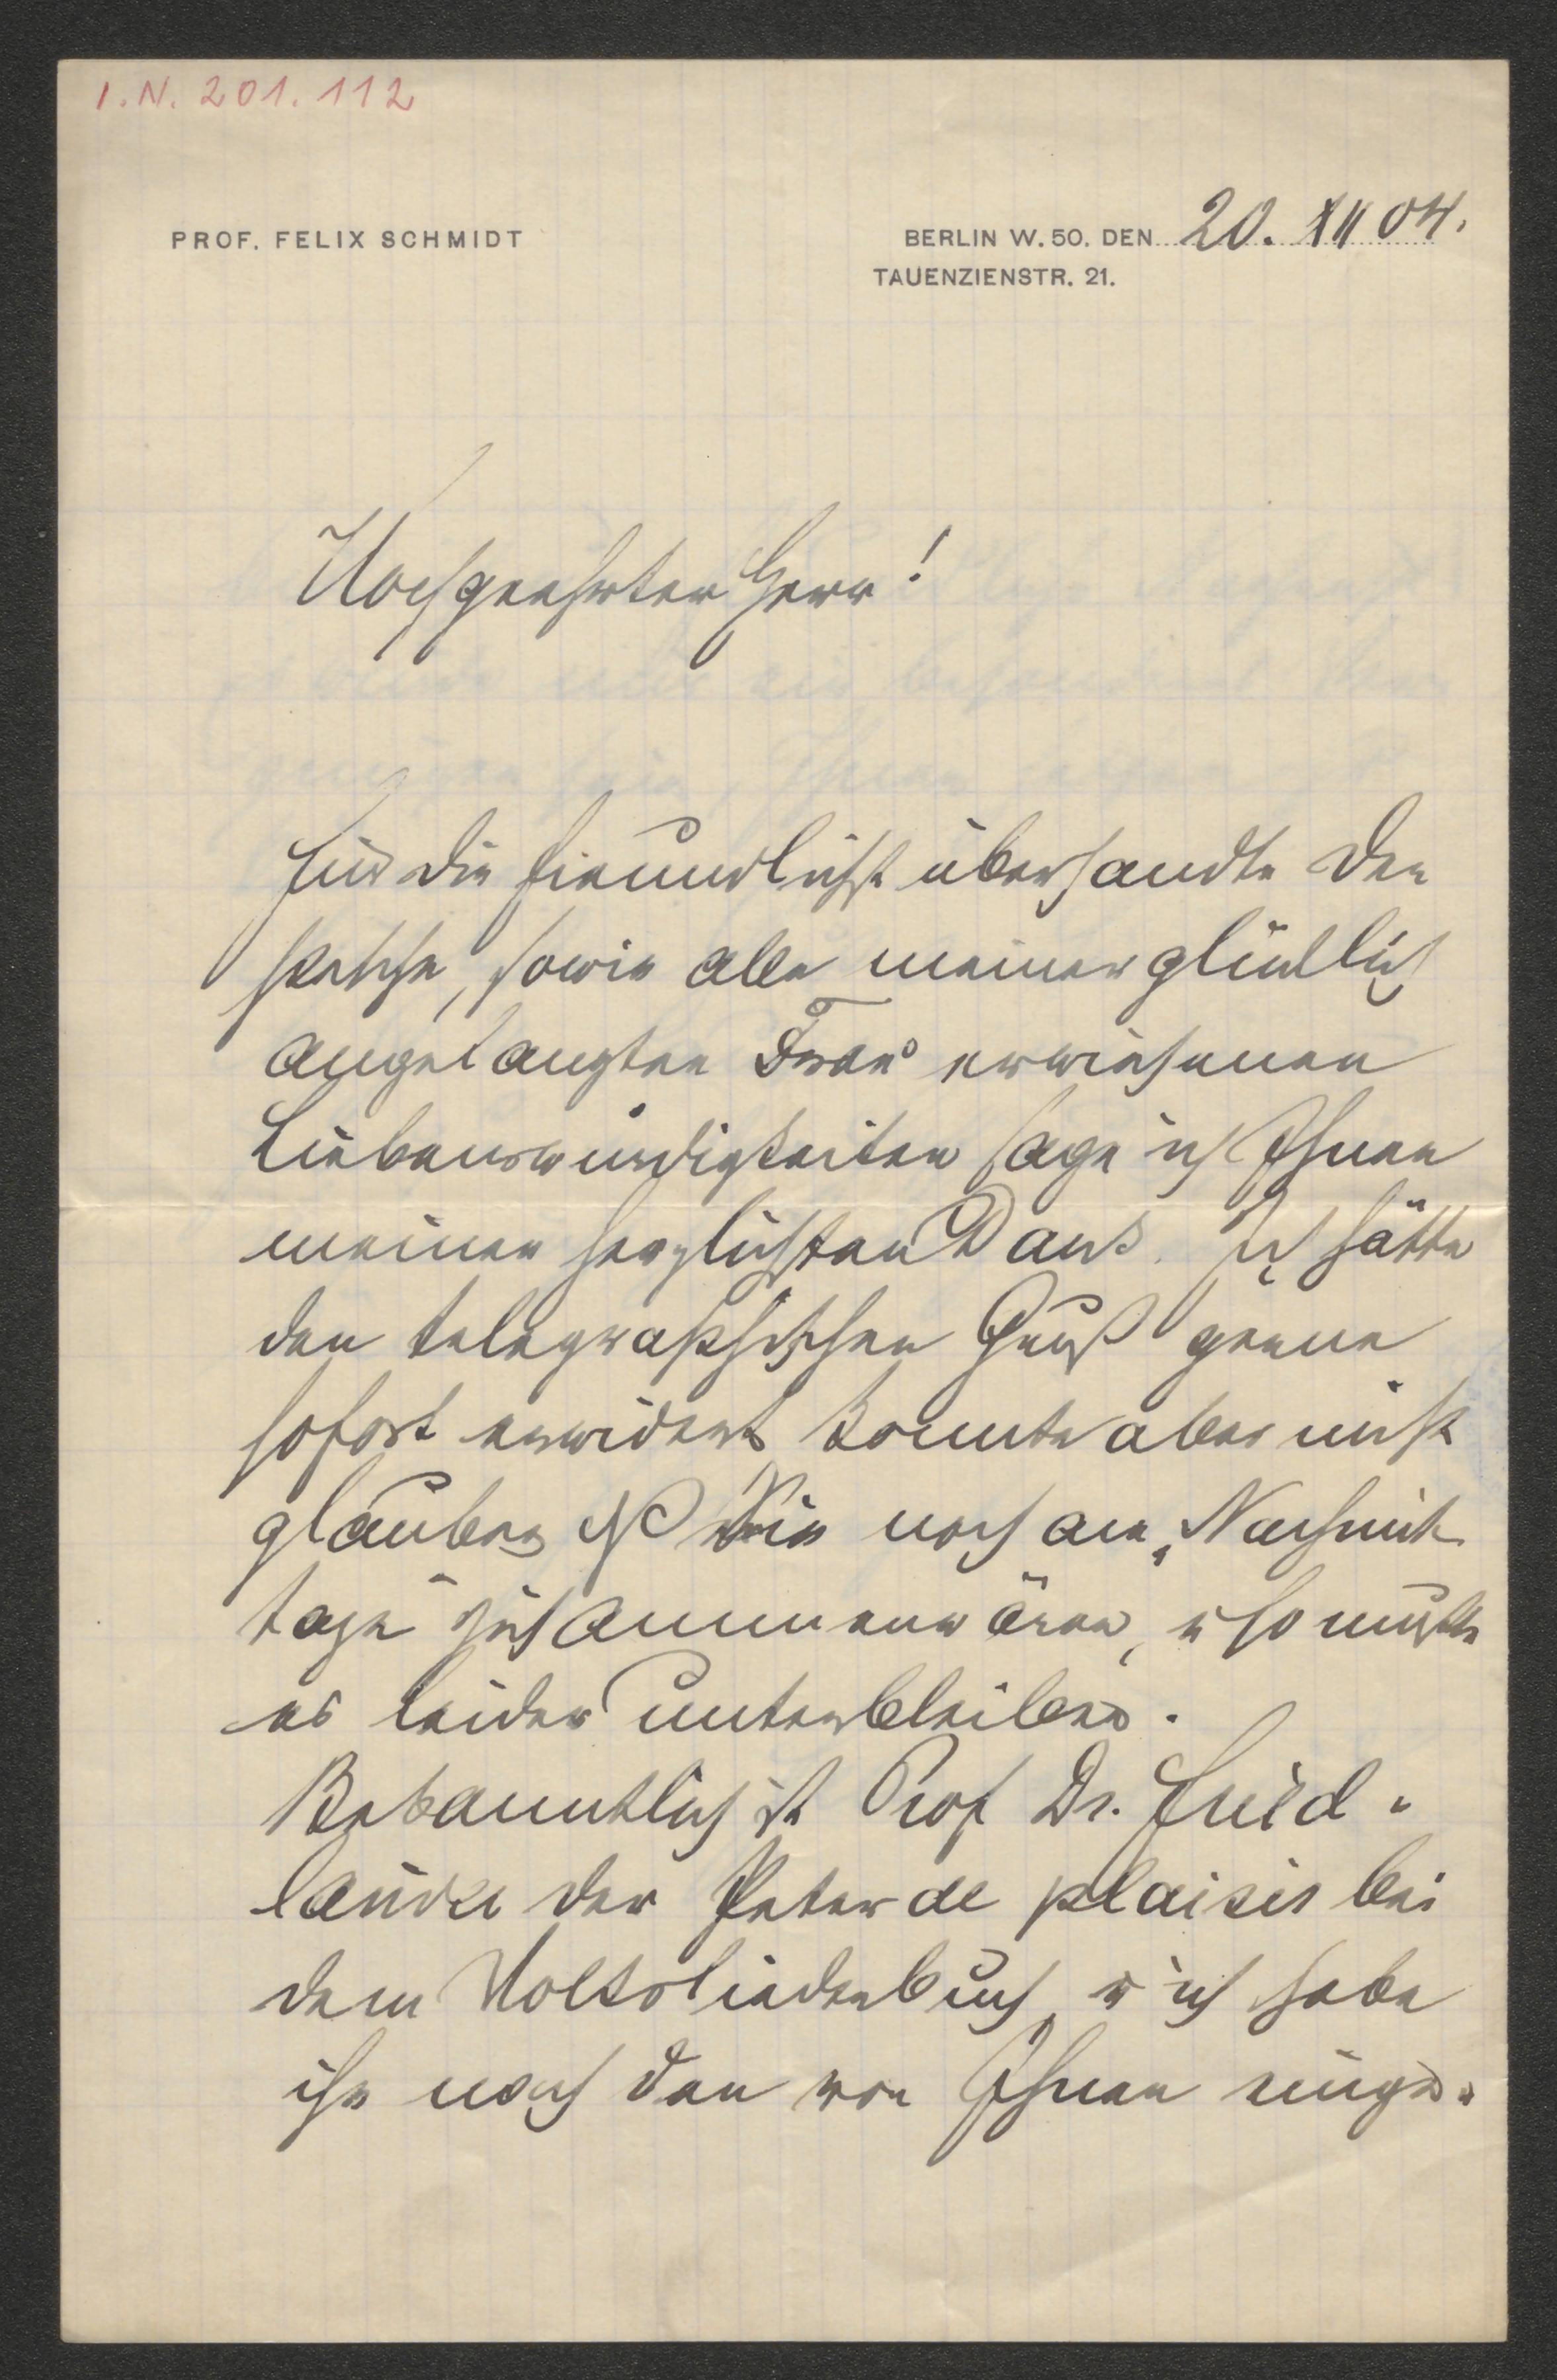 I.N. 201.112
PROF. FELIX SCHMIDT
BERLIN W. 50. DEN 20. XII 04.
TAUENZIENSTR. 21.
Hochgeehrter Herr!
Für die freundlichst übersandte De=
pesche, sowie alle meiner glücklich
angelangten Frau erwiesenen
Liebenswürdigkeiten sage ich Ihnen
meinen herzlichsten Dank. Ich hätte
den telegraphischen Gruß gerne
sofort erwidert konnte aber nicht
glauben, daß Sie noch am „Nachmit
tage" zusammen wären, u so mußte
es leider unterbleiben.
Bekanntlich ist Prof Dr. Fried=
länder der Peter de plaisir bei
dem Volksliederbuch, u ich habe
ihm nach den von Ihnen einge=